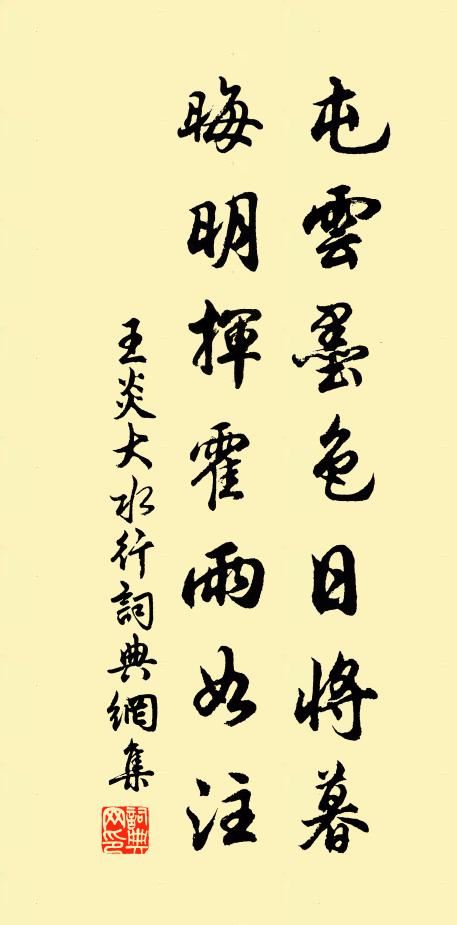 屯雲墨色日將暮
晦明揮霍雨如注
王炎大水行詞典網集
詞典網印